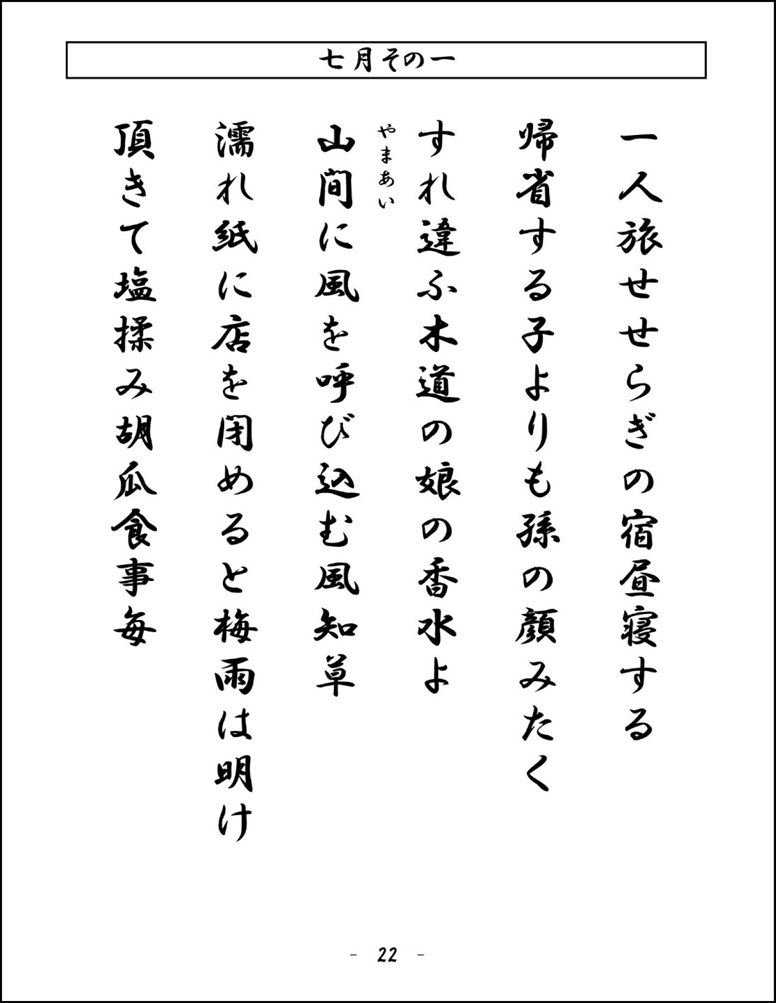 七月その一
一人旅せせらぎの宿昼寝する
帰省する子よりも孫の顔みたく
すれ違ふ木道の娘の香水よ
やまあい
山間に風を呼び込む風知草
濡れ紙に店を閉めると梅雨は明け
頂きて塩揉み胡瓜食事毎
- 22 -